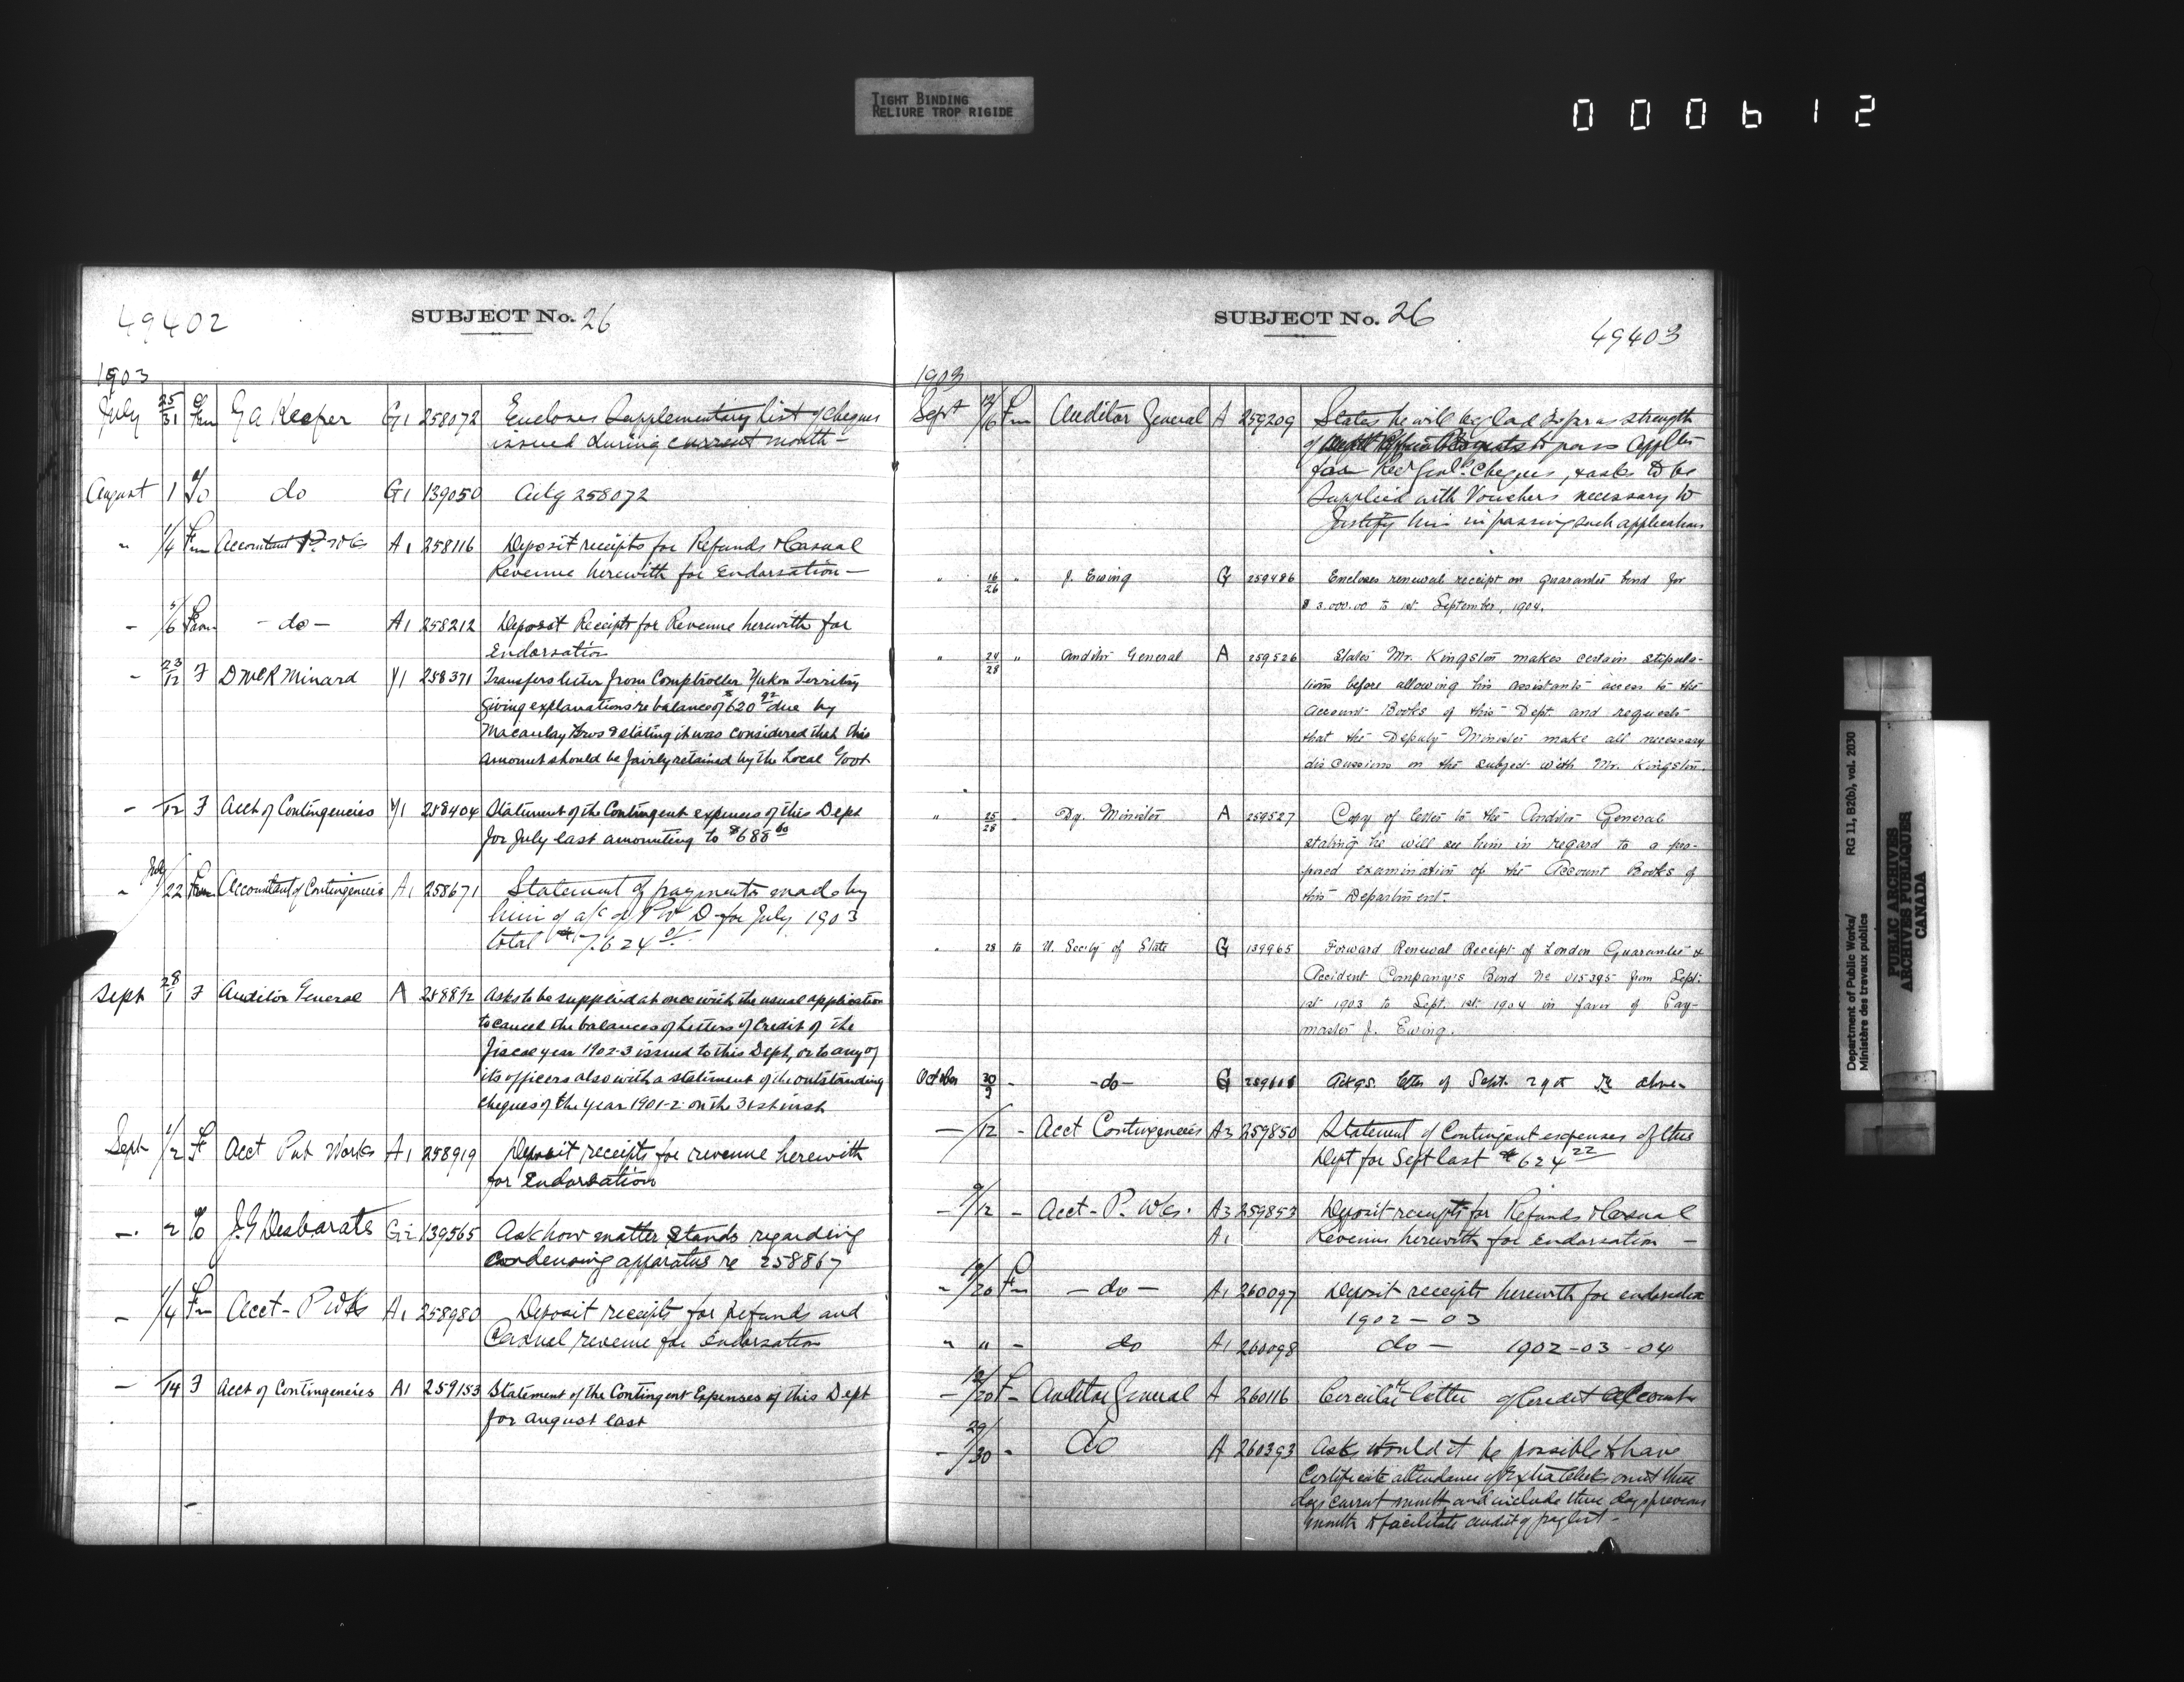 TIGHT BINDING
RELIURE TROP RIGIDE
000612
49402
SUBJECT No. 26
1903
July 25/31 Fm G A Keeper G1 258072 Encloses Supplementary list of cheques
issued during current month -
August 1 To do G1 139050 Ackg 258072
" 1/4 Fm Accountant P Wks A1 258116 Deposit receipts for Refunds & Casual
Revenue herewith for Endorsation -
- 5/6 From - do - A1 258212 Deposit Receipts for Revenue herewith for
Endorsation
- 23/12 F D McR Minard Y1 258371 Transfers letter from Comptroller Yukon Territory
giving explanations re balance of $620 92 due by
Macaulay Bros & stating it was considered that this
amount should be fairly retained by the Local Govt
- /12 F Acct of Contingencies Y1 258404 Statement of the Contingent expenses of this Dept
for July last amounting to $688 60
" July/22 From Accountant of Contingencies A1 258671 Statement of payments made by
him of a/c of P W D for July 1903
total $7.624
Sept 28/1 F Auditor General A 258892 Asks to be supplied at once with the usual application
to cancel the balances of Letters of Credit of the
fiscal year 1902-3 issued to this Dept, or to any of
its officers also with a statement of the outstanding
cheques of the year 1901-2 on the 31st inst
Sept 1/2 F Acct Pub Works A1 258919 Deposit receipts for revenue herewith
for Endorsation
- 2 To J. G Desbarats G2 139565 Ask how matter stands regarding
Condensing apparatus re 258867
- 1/4 Fm Acct - P Wks A1 258980 Deposit receipts for Refunds and
Casual revenue for Endorsation
- /14 F Acct of Contingencies A1 259153 Statement of the Contingent Expenses of this Dept
for August last
SUBJECT No. 26
49403
1903
Sept 12/16 Fm Auditor General A 259209 States he will be glad as far as strength
of to pass Applns
for Recr Genl. Cheques, & asks to be
Supplied with Vouchers necessary to
Justify him in passing such applications
" 16/26 " J. Ewing G 259486 Encloses renewal receipt on guarantee bond for
$3.000.00 to 1st September, 1904.
" 24/28 " Auditor General A 259526 States Mr. Kingston makes certain stipula-
tions before allowing his assistants access to the
Account Books of this Dept. and requests
that the Deputy Minister make all necessary
discussions on the subject with Mr. Kingston.
" 25/28 - Dy. Minister A 259527 Copy of letter to the Auditor General
stating he will see him in regard to a pro-
posed examination of the Account Books of
this Department.
" 28 to U. Secty of State G 139965 Forward Renewal Receipt of London Guarantee &
Accident Company's Bond No 015395 from Sept.
1st 1903 to Sept. 1st 1904 in favor of Pay-
master J. Ewing.
October 30/3 - - do - G Ackgs. letter of Sept. 29th re above
- /12 - Acct Contingencies A3 259850 Statement of Contingent expenses of this
Dept for Sept last $624 22
- 9/12 - Acct - P. Wks. A3 259853 Deposit receipts for Refunds & Casual
A1 Revenue herewith for Endorsation -
- 19/20 Fm - do - A1 260097 Deposit receipts herewith for endorsation
1902 - 03
" " - do A1 260098 do - 1902-03-04
- /20 F - Auditor General A 260116 Circular letter of Credit Account
- 29/30 - do A 260393 Asks would it be possible to have
Certificate attendance of Extra Clerks omit three
days current month and include three days previous
month to facilitate audit of paylist -
Department of Public Works/
Ministère des travaux publics
RG 11, B2(b), vol. 2030
PUBLIC ARCHIVES
ARCHIVES PUBLIQUES
CANADA